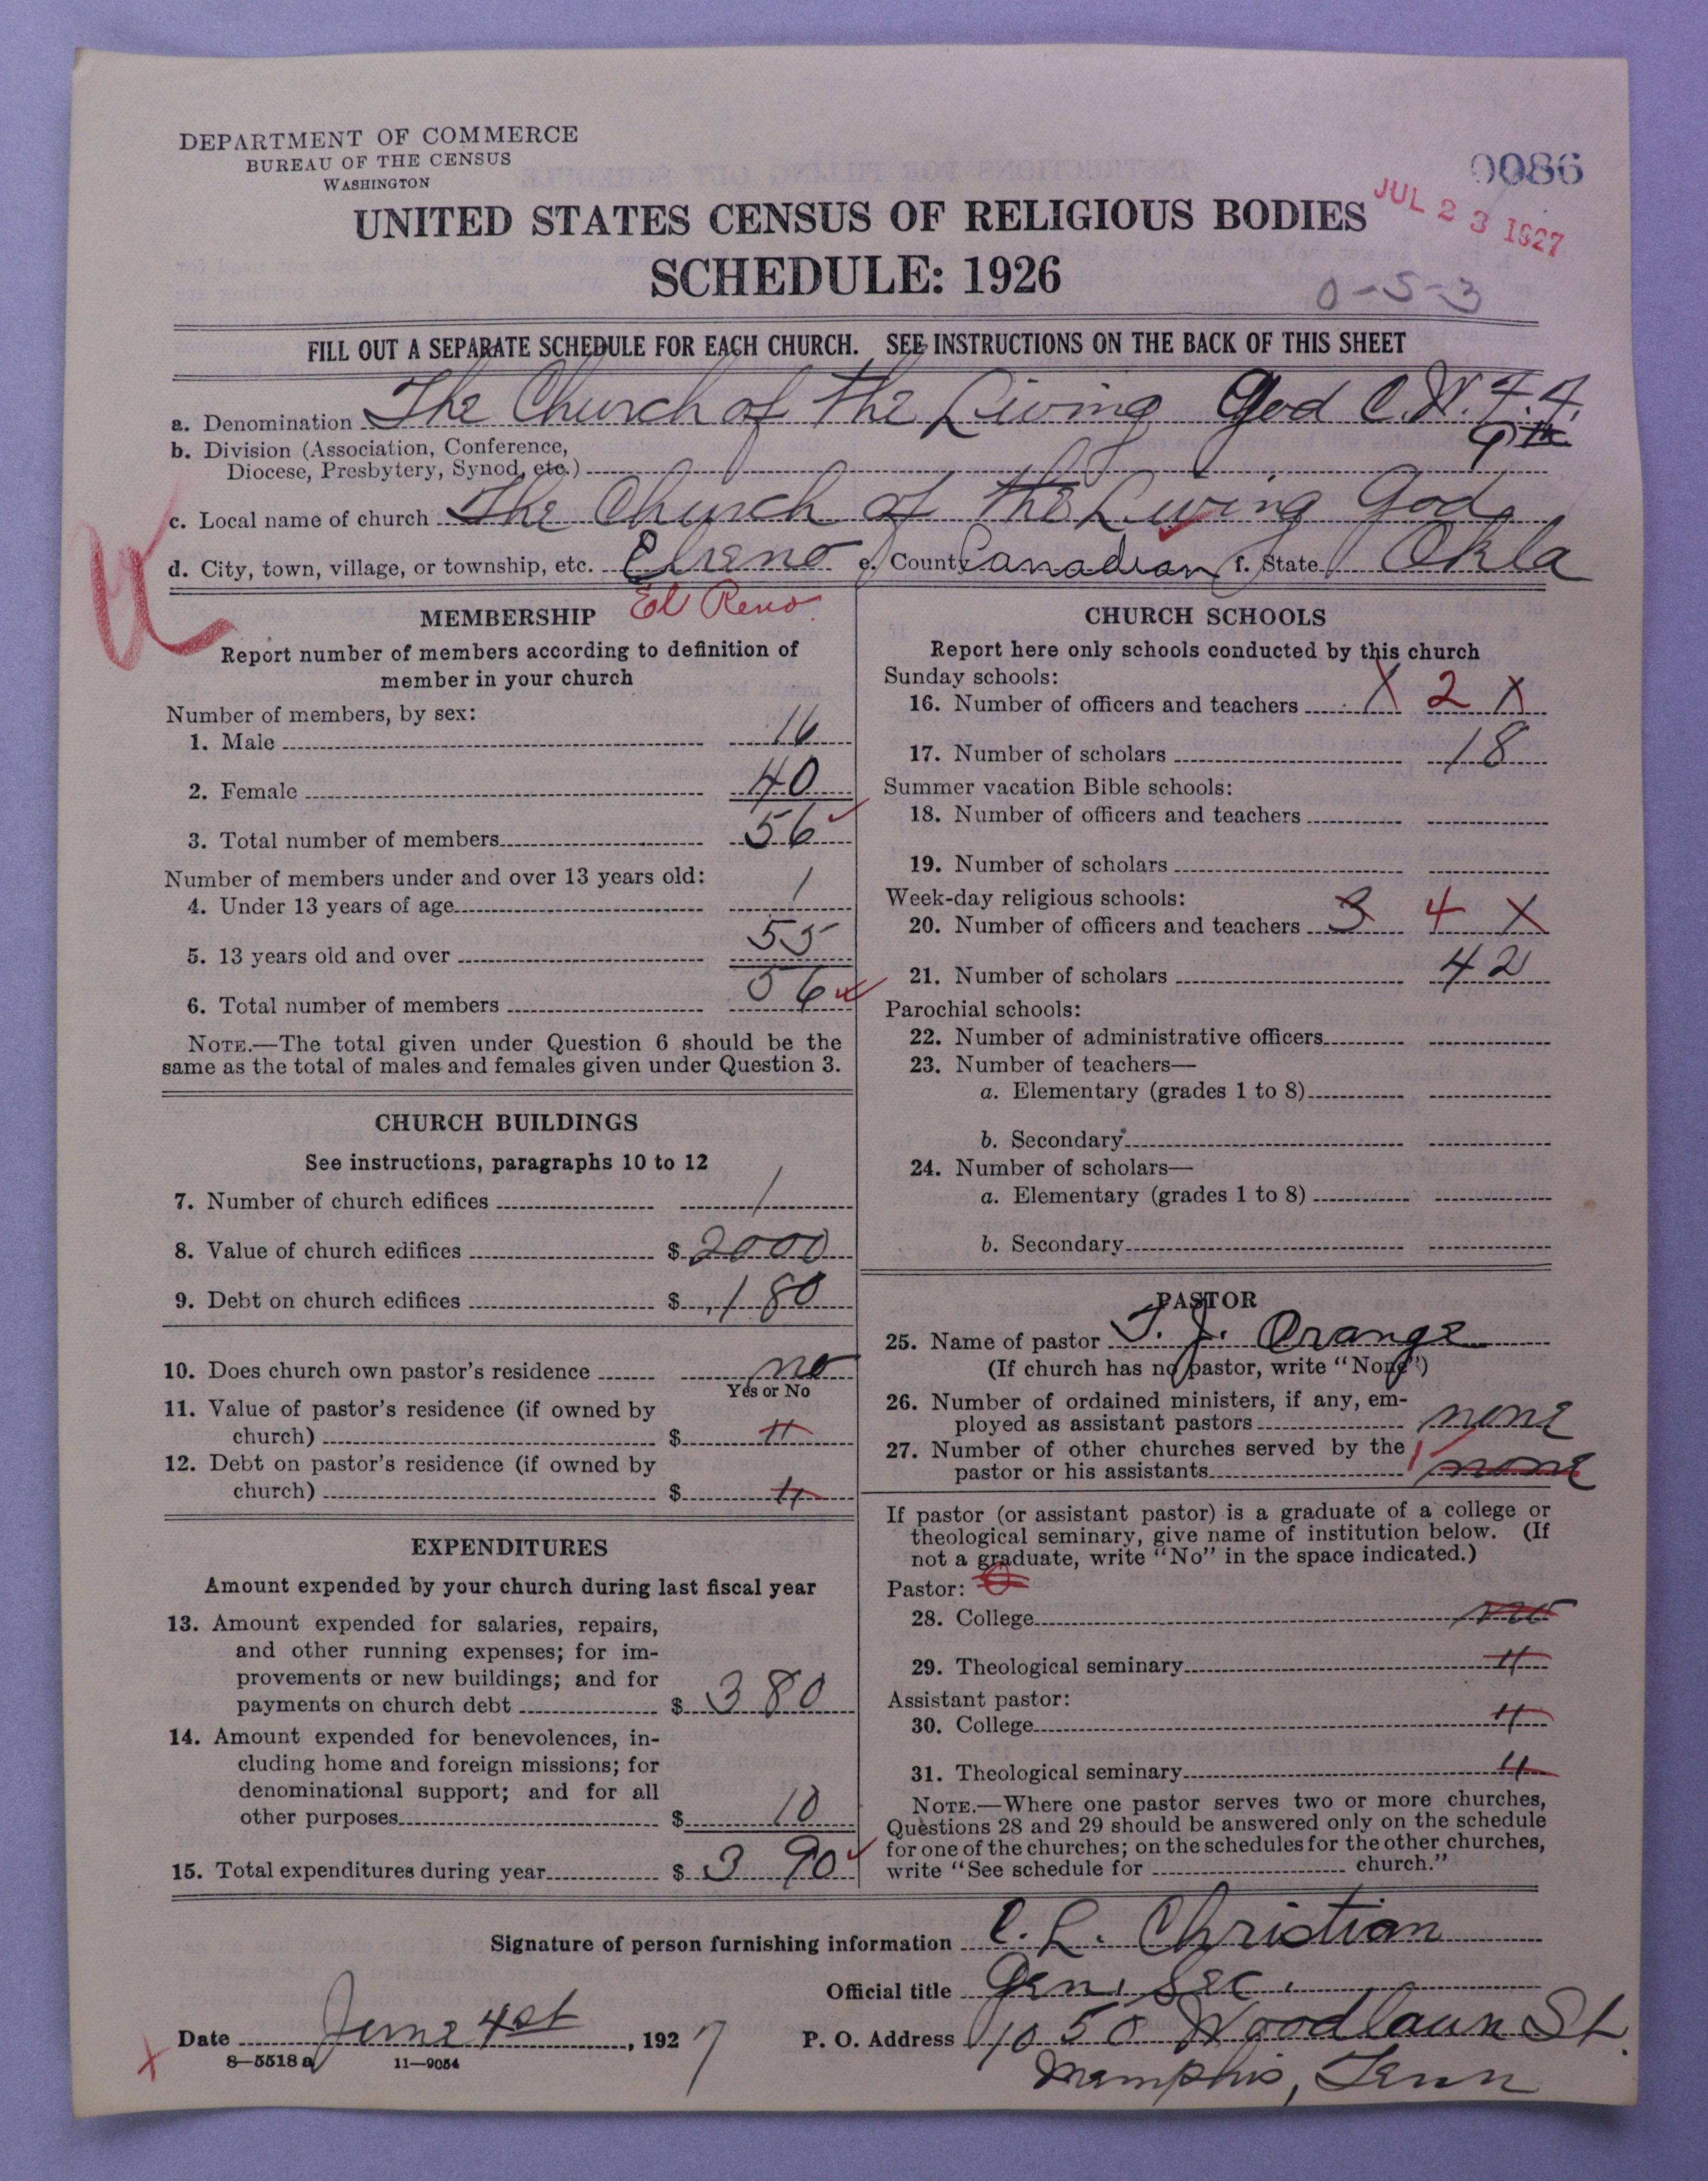 DEPARTMENT OF COMMERCE
BUREAU OF THE CENSUS
WASHINGTON
0086
JUL 23 1927
UNITED STATES CENSUS OF RELIGIOUS BODIES
SCHEDULE: 1926
0-5-3
FILL OUT A SEPARATE SCHEDULE FOR EACH CHURCH. SEE INSTRUCTIONS ON THE BACK OF THIS SHEET
a. Denomination The Church of the Living God C.W.F.F.
b. Division (Association, Conference,
Diocese, Presbytery, Synod, etc.)
c. Local name of church The Church of the Living God
d. City, town, village, or township, etc. Elreno e. County Canadian f. State Okla
El Reno
MEMBERSHIP
Report number of members according to definition of
member in your church
Number of members, by sex:
1. Male 16
2. Female 40
3. Total number of members 56
Number of members under and over 13 years old:
4. Under 13 years of age 1
5. 13 years old and over 55
6. Total number of members 56
NOTE.—The total given under Question 6 should be the
same as the total of males and females given under Question 3.
CHURCH BUILDINGS
See instructions, paragraphs 10 to 12
7. Number of church edifices 1
8. Value of church edifices $ 2000
9. Debt on church edifices $ 180
10. Does church own pastor's residence no
Yes or No
11. Value of pastor's residence (if owned by
church) $ "
12. Debt on pastor's residence (if owned by
church) $ "
EXPENDITURES
Amount expended by your church during last fiscal year
13. Amount expended for salaries, repairs,
and other running expenses; for im-
provements or new buildings; and for
payments on church debt $ 380
14. Amount expended for benevolences, in-
cluding home and foreign missions; for
denominational support; and for all
other purposes $ 10
15. Total expenditures during year $ 390
CHURCH SCHOOLS
Report here only schools conducted by this church
Sunday schools:
16. Number of officers and teachers 1 2 X
17. Number of scholars 18
Summer vacation Bible schools:
18. Number of officers and teachers
19. Number of scholars
Week-day religious schools:
20. Number of officers and teachers 3 4 X
21. Number of scholars 42
Parochial schools:
22. Number of administrative officers
23. Number of teachers—
a. Elementary (grades 1 to 8)
b. Secondary
24. Number of scholars—
a. Elementary (grades 1 to 8)
b. Secondary
PASTOR
25. Name of pastor T. J. Orange
(If church has no pastor, write "None")
26. Number of ordained ministers, if any, em-
ployed as assistant pastors none
27. Number of other churches served by the
pastor or his assistants 1 none
If pastor (or assistant pastor) is a graduate of a college or
theological seminary, give name of institution below. (If
not a graduate, write "No" in the space indicated.)
Pastor:
28. College no
29. Theological seminary "
Assistant pastor:
30. College "
31. Theological seminary "
NOTE.—Where one pastor serves two or more churches,
Questions 28 and 29 should be answered only on the schedule
for one of the churches; on the schedules for the other churches,
write "See schedule for church."
Signature of person furnishing information C. L. Christian
Official title Gen. Sec.
Date June 4st, 1927 P. O. Address 1050 Woodlawn St.
Memphis, Tenn
8—5518a 11—9054